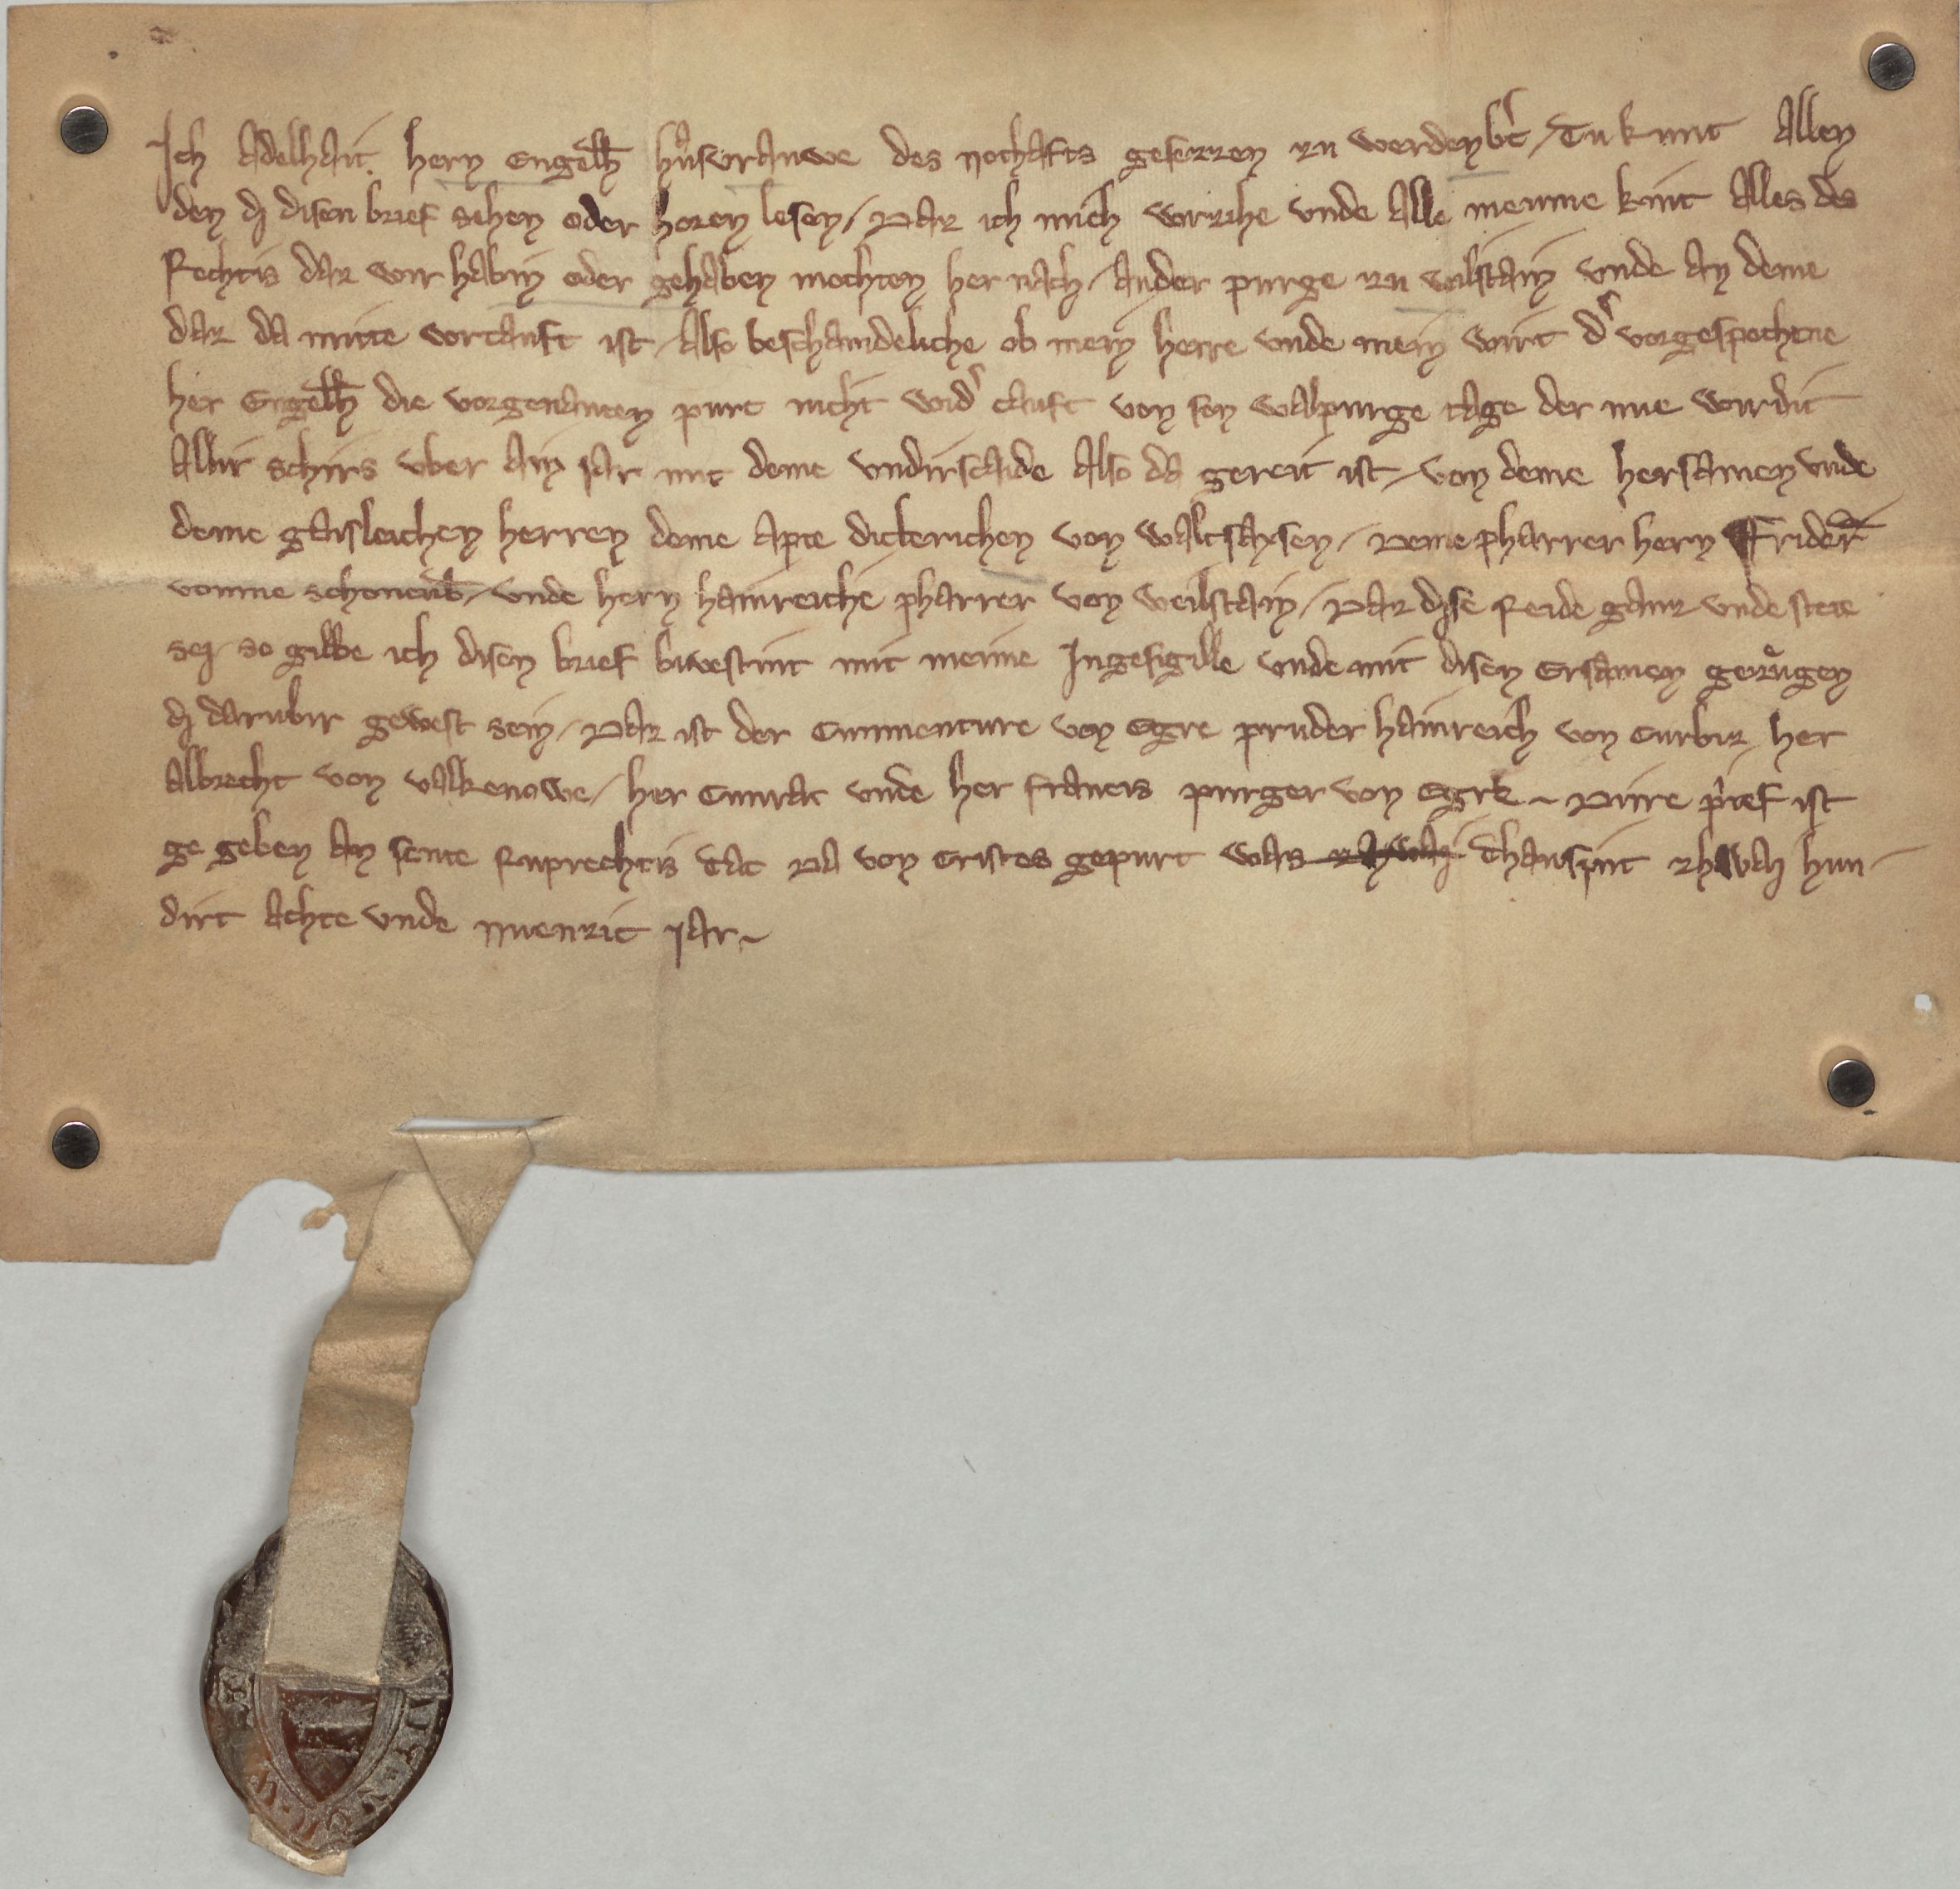 Ich Adelhait hern Engelh husvrauwe des nothafts gesezzen zu werdenbc / Tu kunt Allen
den di disen brief sehen oder horen lesen / Daz ich mich vorzihe vnde Alle meinne kint Alles des
Rechtis daz wir habin oder gehaben mochten her nach / Ander purge zu weilstain vnde An deme
daz da mitte vorcauft ist / Also beschaindeliche ob mein herre vnde mein wirt d' vorgesprochene
her Engelh die vorgenanten purc nicht wid' cauft von sen walpurge tage der nue wirdit
Allir schirs vber Ain iar mit deme vndirscaide Also da gereit ist / von deme hersamen vnde
deme gaisleichen herren deme Apte ditterichen von waltsaxsen / Deme pharrer hern Frider
vonme schonenb / vnde hern hainreiche pharrer von weilstain / Daz dise Reide ganz vnde stete
sei / so gibbe ich disen brief bivestint mit meime Ingesigille vnde mit disen Ersamen gezugen
di darubir gewest sein / Daz ist der Cummenture von Egre pruder hainreich von Curbiz / her
Albrecht von valkenowe / her Cunrat vnde her francis purger von Egre ~ Dirre prief ist
ge geben An sente Ruprechtis Tac Da von Cristes gepurt was Thausint zhwai hun-
dirt Achte vnde nuenzic iar ~